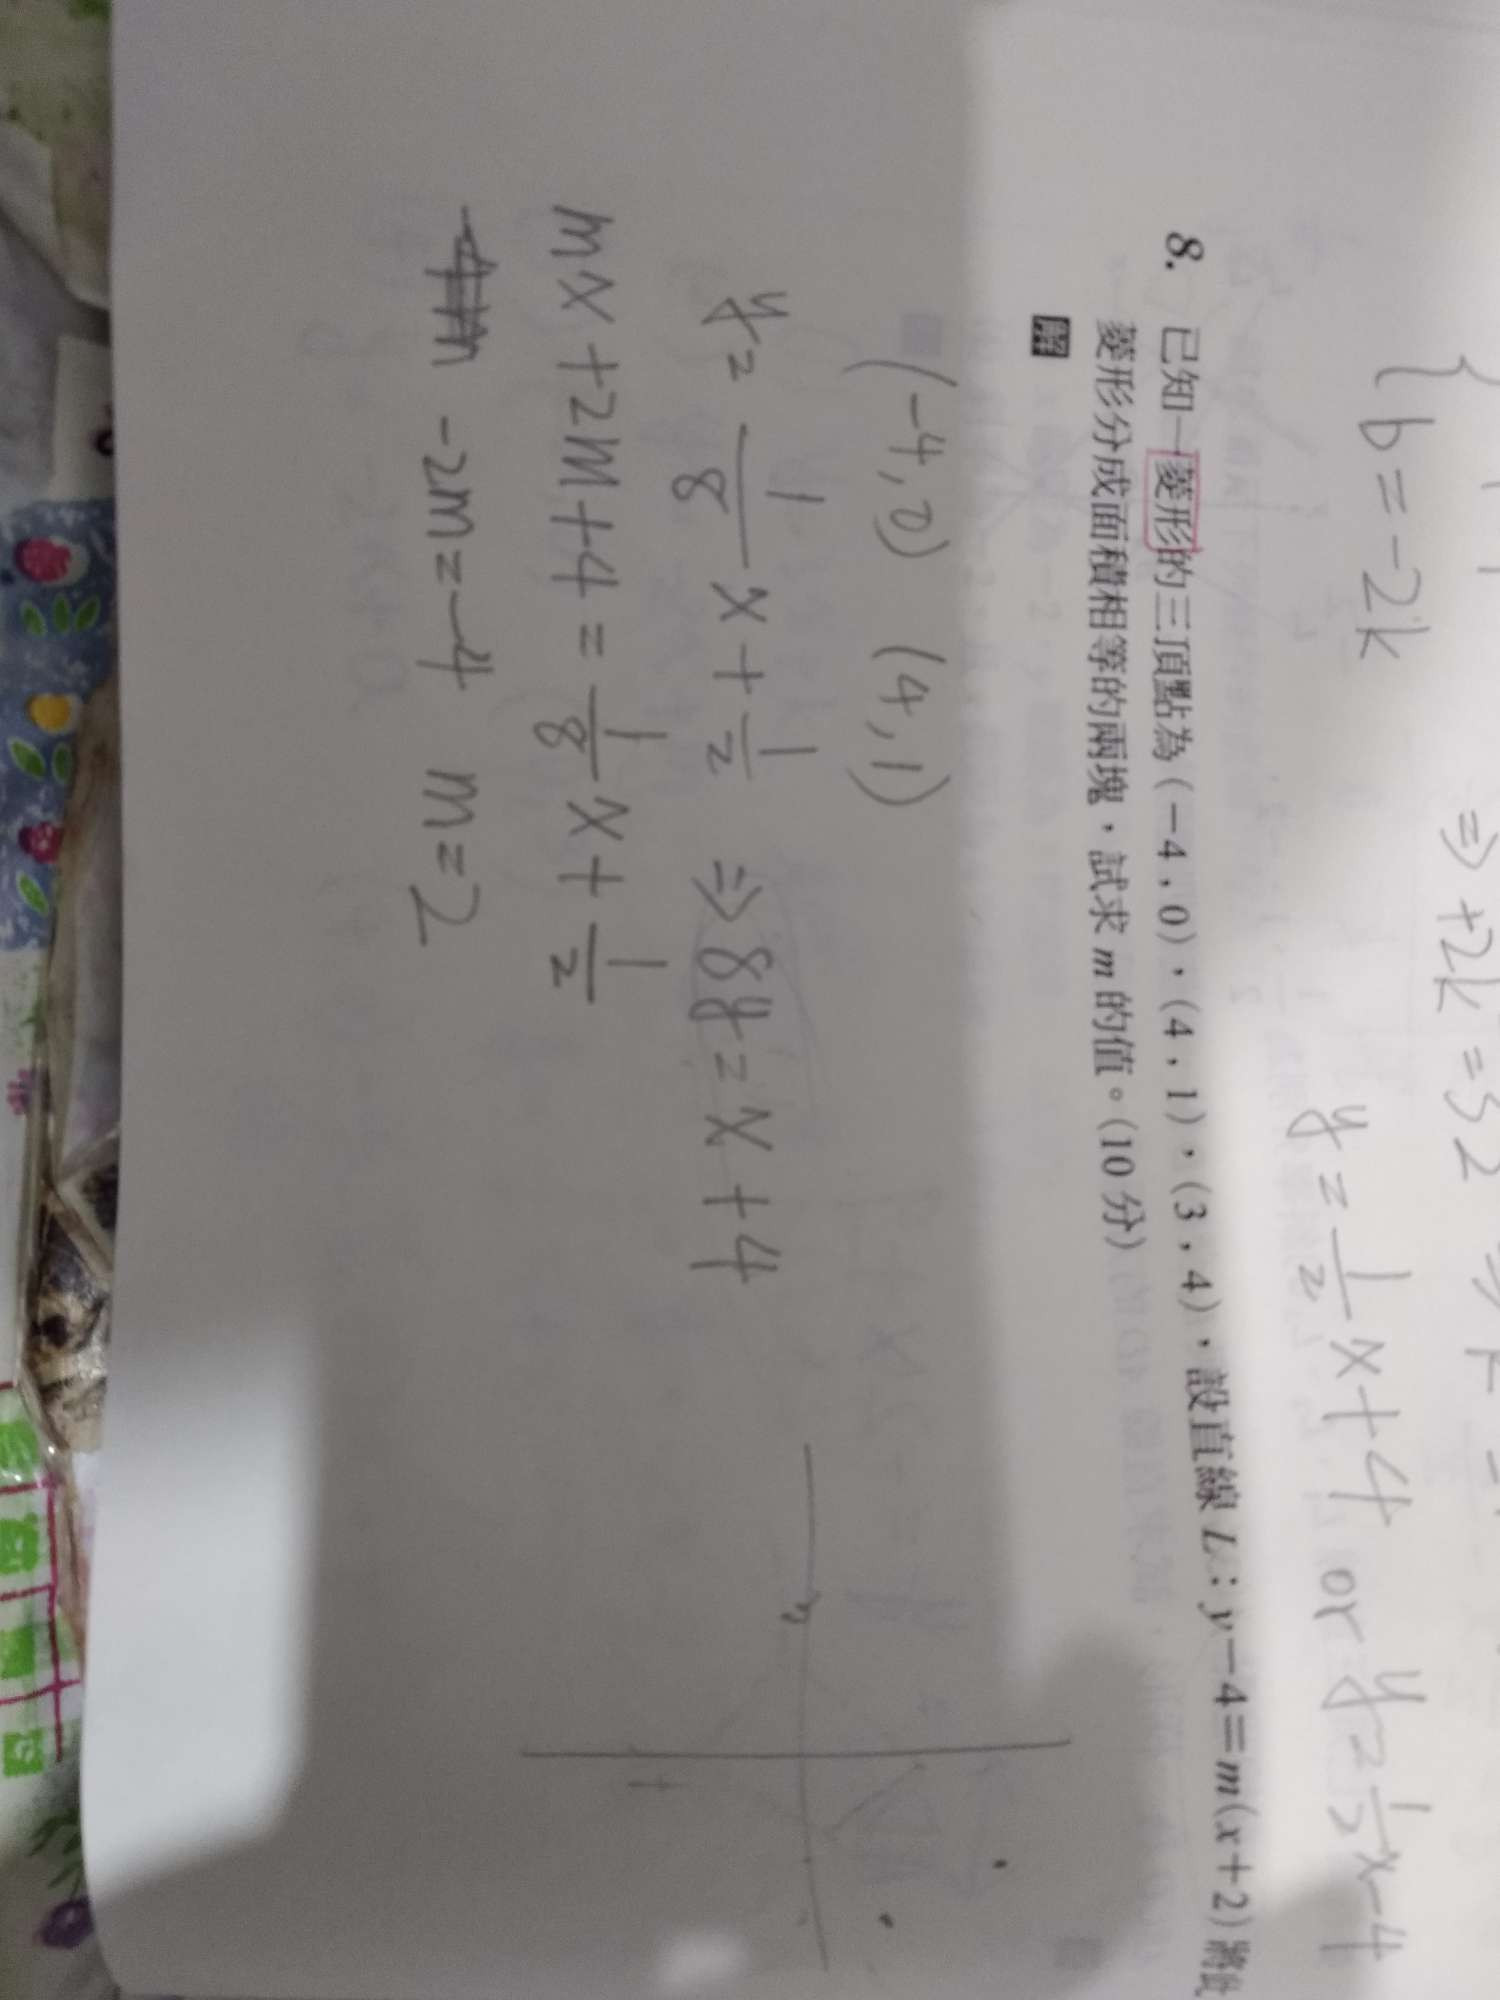 ⇒ +2k = 32
b = -2k
y = 1/2 x + 4 or y = 1/2 x - 4
8. 已知一菱形的三頂點為(-4,0)、(4,1)、(3,4),設直線 L:y-4=m(x+2)將此
菱形分成面積相等的兩塊,試求 m 的值。(10 分)
解
(-4,0) (4,1)
y = 1/8 x + 1/2 ⇒ 8y = x + 4
mx + 2m + 4 = 1/8 x + 1/2
-2m = -4 m = 2